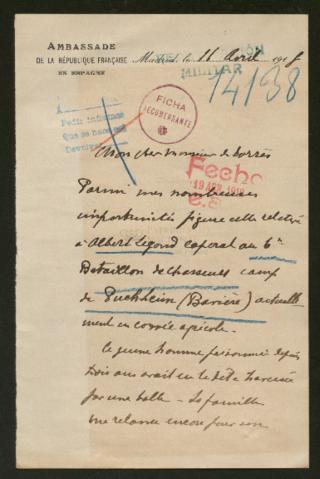 AMBASSADE
DE LA RÉPUBLIQUE FRANÇAISE
EN ESPAGNE
Madrid, le 16 Avril 1918
MILITAR
14138
FICHA
RECOMENDANTE
Pedir informes
Que se haga
Devolver
Mon cher Monsieur de Torrès
Fecho
19 ABR. 1918
Parmi mes nombreuses
importunités figure celle relative
à Albert Legond caporal au 6e
Bataillon de chasseurs camp
de Puchheim (Bavière) actuelle
ment en corvée agricole.
Ce jeune homme prisonnier depuis
trois ans avait eu la tête traversée
par une balle - Sa famille
me relance encore pour son